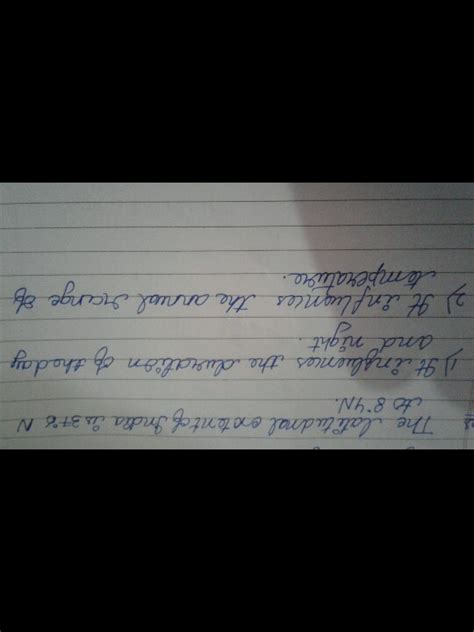 The latitudnal extent of India is 37°6 N
to 8°4N.
1) It influences the duration of the day
and night.
2) It influences the annual range of
temperature.